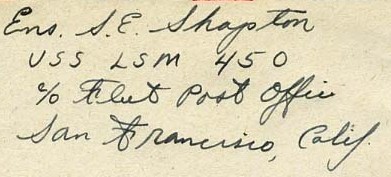 Ens. S.E. Shapton
USS LSM 450
c/o Fleet Post Office
San Francisco, Calif.